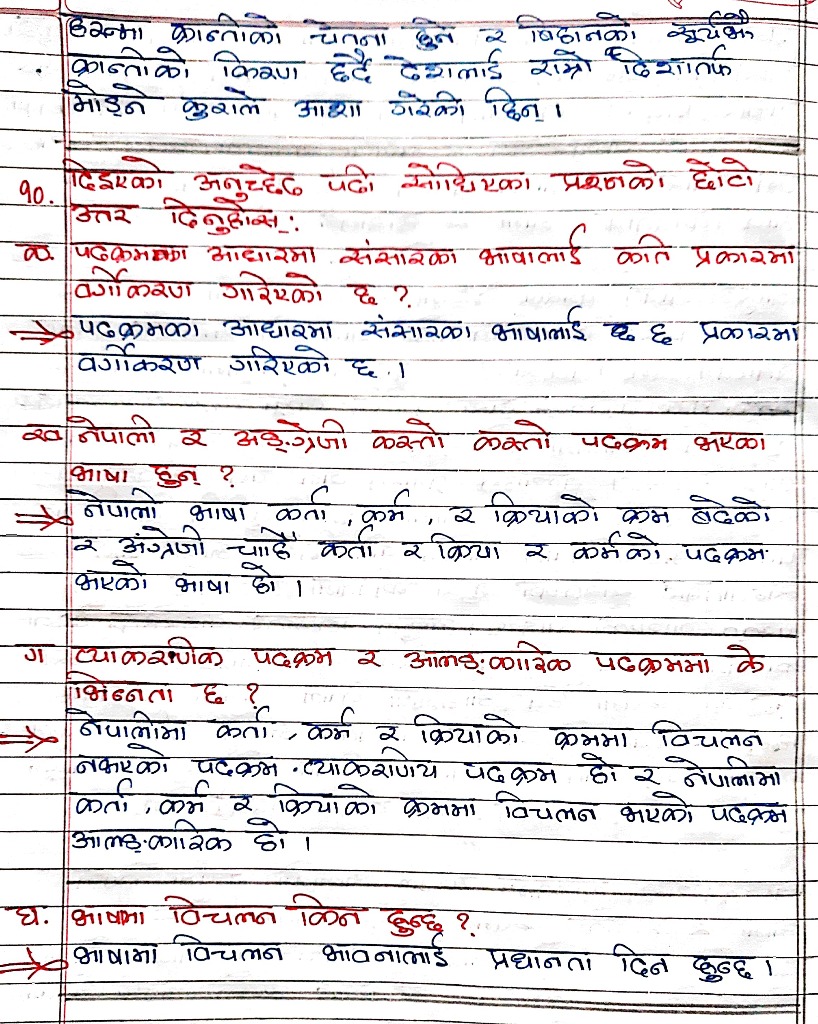 क्रान्तीको चेतना हुन र बिहानको
क्रान्तीको किरण छर्दै देशलाई राम्रो दिशातर्फ
मोड्ने कुराले आशा गरेको दिन् ।
१०. दिइएको अनुच्छेद पढी सोधिएका प्रश्नको छोटो
उत्तर दिनुहोस् :
क. पदक्रमका आधारमा संसारका भाषालाई कति प्रकारमा
वर्गीकरण गरिएको छ ?
पदक्रमका आधारमा संसारका भाषालाई छ प्रकारमा
वर्गीकरण गरिएको छ ।
ख नेपाली र अङ्ग्रेजी कस्तो कस्तो पदक्रम भएका
भाषा हुन् ?
नेपाली भाषा कर्ता, कर्म, र क्रियाको क्रम
र अंग्रेजी चाहिँ कर्ता र क्रिया र कर्मको पदक्रम
भएको भाषा हो ।
ग व्याकरणीक पदक्रम र आलङ्कारिक पदक्रममा के
भिन्नता छ ?
नेपालीमा कर्ता, कर्म र क्रियाको क्रममा विचलन
नभएको पदक्रम व्याकरणीय पदक्रम हो र नेपालीमा
कर्ता, कर्म र क्रियाको क्रममा विचलन भएको पदक्रम
आलङ्कारिक हो ।
घ. भाषामा विचलन किन हुन्छ ?
भाषामा विचलन भावनालाई प्रधानता दिन हुन्छ ।